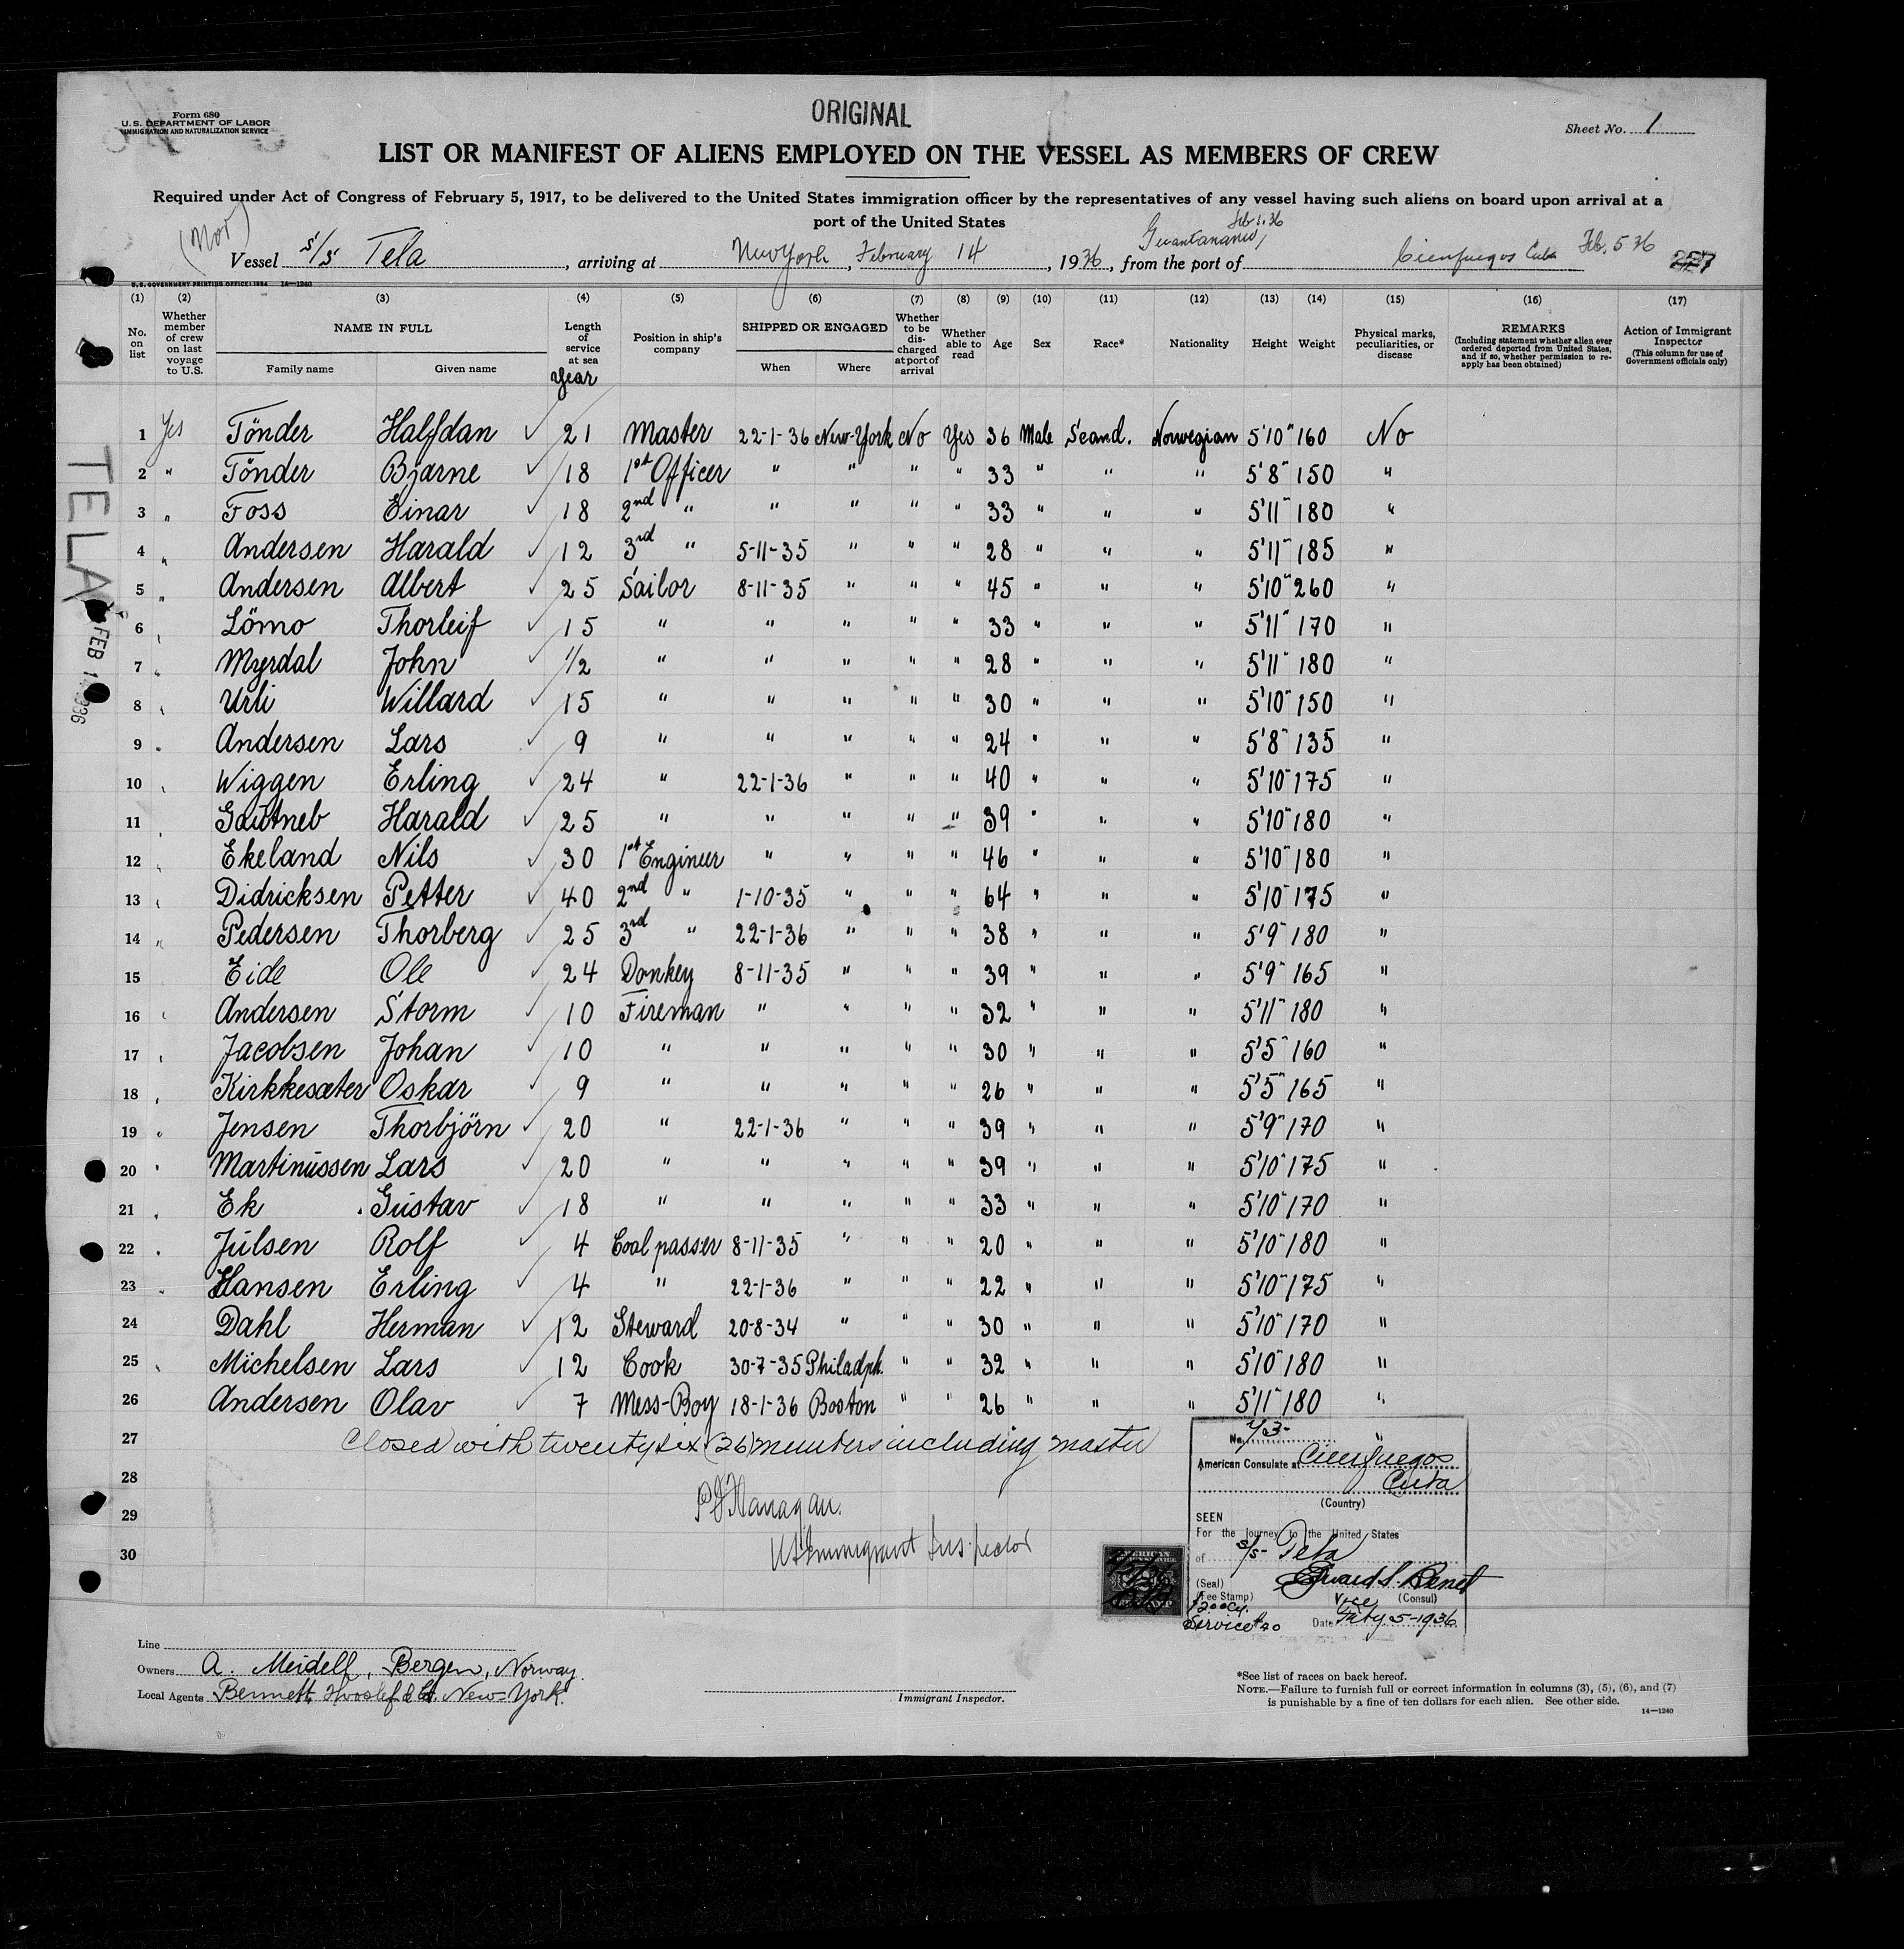 Form 680
U.S. DEPARTMENT OF LABOR
IMMIGRATION AND NATURALIZATION SERVICE
ORIGINAL
Sheet No. 1
LIST OR MANIFEST OF ALIENS EMPLOYED ON THE VESSEL AS MEMBERS OF CREW
Required under Act of Congress of February 5, 1917, to be delivered to the United States immigration officer by the representatives of any vessel having such aliens on board upon arrival at a
port of the United States
(Nor)
Feb 1, 36
Vessel S/S Tela, arriving at New York, February 14, 1936, from the port of Guantanamo, Cienfuegos Cuba Feb. 5 36
U.S. GOVERNMENT PRINTING OFFICE: 1934 14—1240
(1) (2) (3) (4) (5) (6) (7) (8) (9) (10) (11) (12) (13) (14) (15) (16) (17)
No. on list
Whether member of crew on last voyage to U.S.
NAME IN FULL
Family name
Given name
Length of service at sea
Year
Position in ship's company
SHIPPED OR ENGAGED
When
Where
Whether to be discharged at port of arrival
Whether able to read
Age
Sex
Race*
Nationality
Height
Weight
Physical marks, peculiarities, or disease
REMARKS
(Including statement whether alien ever ordered deported from United States, and if so, whether permission to reapply has been obtained)
Action of Immigrant Inspector
(This column for use of Government officials only)
1 Yes Tönder Halfdan ✓ 21 Master 22-1-36 New-York No Yes 36 Male Scand. Norwegian 5'10" 160 No
2 " Tönder Bjarne ✓ 18 1st Officer " " " " 33 " " " 5'8" 150 "
3 " Foss Einar ✓ 18 2nd " " " " " 33 " " " 5'11" 180 "
4 " Andersen Harald ✓ 12 3rd " 5-11-35 " " " 28 " " " 5'11" 185 "
5 " Andersen Albert ✓ 25 Sailor 8-11-35 " " " 45 " " " 5'10" 260 "
6 " Lömo Thorleif ✓ 15 " " " " " 33 " " " 5'11" 170 "
7 " Myrdal John ✓ 1/2 " " " " " 28 " " " 5'11" 180 "
8 " Urli Willard ✓ 15 " " " " " 30 " " " 5'10" 150 "
9 " Andersen Lars ✓ 9 " " " " " 24 " " " 5'8" 135 "
10 " Wiggen Erling ✓ 24 " 22-1-36 " " " 40 " " " 5'10" 175 "
11 " Gautneb Harald ✓ 25 " " " " " 39 " " " 5'10" 180 "
12 " Ekeland Nils ✓ 30 1st Engineer " " " " 46 " " " 5'10" 180 "
13 " Didricksen Petter ✓ 40 2nd " 1-10-35 " " " 64 " " " 5'10" 175 "
14 " Pedersen Thorberg ✓ 25 3rd " 22-1-36 " " " 38 " " " 5'9" 180 "
15 Eide Ole ✓ 24 Donkey 8-11-35 " " " 39 " " " 5'9" 165 "
16 " Andersen Storm ✓ 10 Fireman " " " " 32 " " " 5'11" 180 "
17 " Jacobsen Johan ✓ 10 " " " " " 30 " " " 5'5" 160 "
18 " Kirkkesæter Oskar ✓ 9 " " " " " 26 " " " 5'5" 165 "
19 " Jensen Thorbjörn ✓ 20 " 22-1-36 " " " 39 " " " 5'9" 170 "
20 " Martinussen Lars ✓ 20 " " " " " 39 " " " 5'10" 175 "
21 " Ek Gustav ✓ 18 " " " " " 33 " " " 5'10" 170 "
22 " Julsen Rolf ✓ 4 Coal passer 8-11-35 " " " 20 " " " 5'10" 180 "
23 " Hansen Erling ✓ 4 " 22-1-36 " " " 22 " " " 5'10" 175 "
24 Dahl Herman ✓ 12 Steward 20-8-34 " " " 30 " " " 5'10" 170 "
25 " Michelsen Lars ✓ 12 Cook 30-7-35 Philadph. " " 32 " " " 5'10" 180 "
26 Andersen Olav ✓ 7 Mess-Boy 18-1-36 Boston " " 26 " " " 5'11" 180 "
27 Closed with twenty six (26) members including master
28
29
30
U.S. Immigrant Inspector
TELA
FEB 1
No. 43-
American Consulate at Cienfuegos
Cuba
(Country)
SEEN
For the journey to the United States
of S/S- Tela
(Seal)
(Fee Stamp)
Vice (Consul)
Service # 20
Date Feby. 5-1936
Line
Owners A. Meidell, Bergen, Norway.
Local Agents Bennett, Hvoslef & Co. New-York.
Immigrant Inspector.
*See list of races on back hereof.
NOTE.—Failure to furnish full or correct information in columns (3), (5), (6), and (7)
is punishable by a fine of ten dollars for each alien. See other side.
14—1240